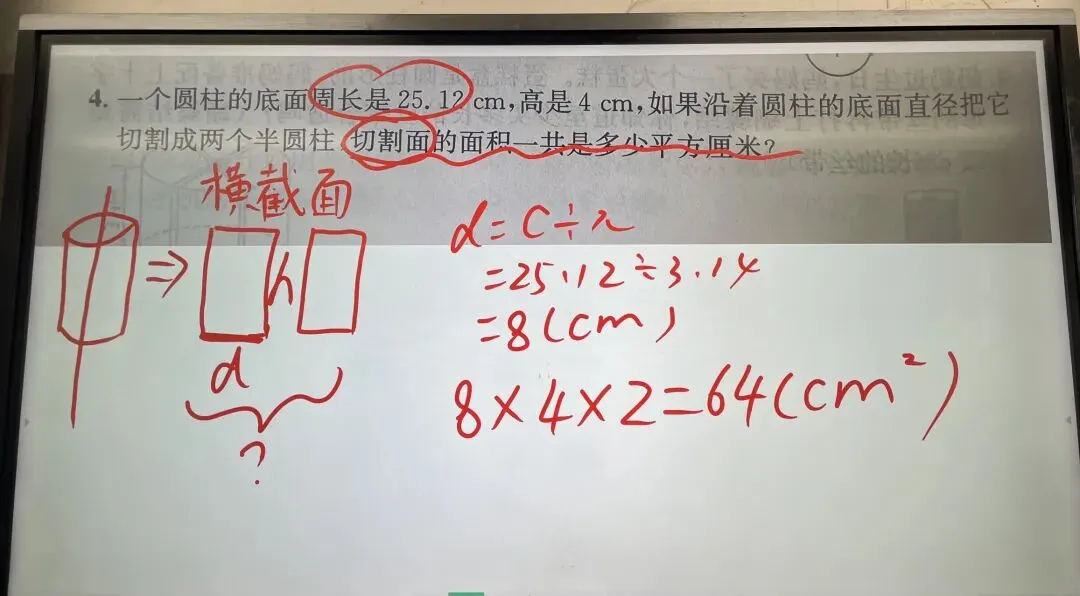 4. 一个圆柱的底面周长是 25.12 cm,高是 4 cm,如果沿着圆柱的底面直径把它
切割成两个半圆柱,切割面的面积一共是多少平方厘米?
横截面
⇒ h
d
?
d=C÷π
=25.12÷3.14
=8(cm)
8×4×2=64(cm²)